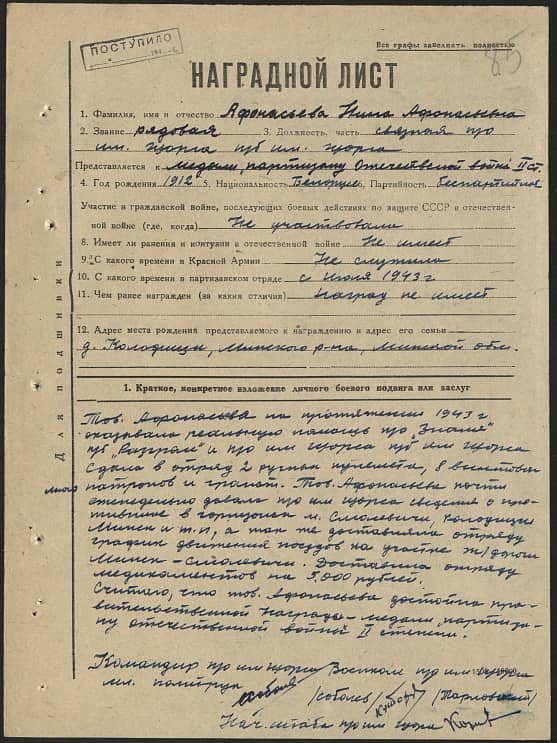 Все графы заполнить полностью
85
ПОСТУПИЛО
194
НАГРАДНОЙ ЛИСТ
1. Фамилия, имя и отчество Афонасьева Нина Афонасьевна
2. Звание рядовая 3. Должность, часть связная п/о
им. Щорса п/б им. Щорса
Представляется к медали „партизану Отечественной войны" II ст.
4. Год рождения 1912 5. Национальность Белорус 6. Партийность беспартийн
Участие в гражданской войне, последующих боевых действиях по защите СССР и отечествен-
ной войне (где, когда) Не участвовала
8. Имеет ли ранения и контузии в отечественной войне Не имеет
9. С какого времени в Красной Армии Не служила
10. С какого времени в партизанском отряде с Июля 1943 г
11. Чем ранее награжден (за какия отличия) Наград не имеет
12. Адрес места рождения представляемого к награждению и адрес его семьи
д. Колодищи, Минского р-на, Минской обл.
Для подшивки
1. Краткое, конкретное изложение личного боевого подвига или заслуг
Тов. Афонасьева на протяжении 1943 г
оказывала реальную помощь п/о „Знамя"
п/б „Разгром" и п/о им Щорса п/б им Щорса
Сдала в отряд 2 ручных пулемета, 8 винтовок
много патронов и гранат. Тов. Афонасьева почти
еженедельно давала п/о им Щорса сведения о про-
тивнике в гарнизонах м. Смолевичи, Колодищи
Минск и т.п, а так же доставляла отряду
график движения поездов на участке ж/дороги
Минск-Смолевичи. Доставила отряду
медикаментов на 5.000 рублей.
Считаю, что тов. Афонасьева достойна пра-
вительственной награды - медали „партиза-
ну отечественной войны" II степени.
Командир п/о им Щорса Военком п/о им Щорса
мл. политрук /Соболев/ /Тарловский/
Нач. штаба п/о им Щорса